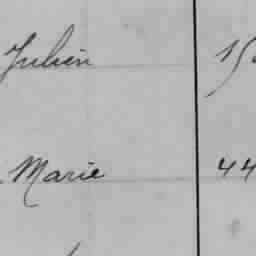 Julien 15
Marie 44